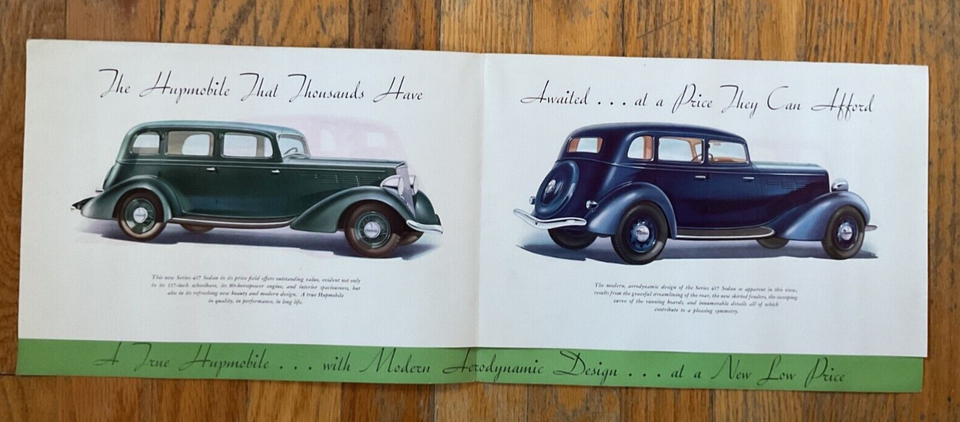 The Hupmobile That Thousands Have
Awaited . . . at a Price They Can Afford
This new Series 417 Sedan in its price field offers outstanding value, evident not only
in its 117-inch wheelbase, its 80-horsepower engine, and interior spaciousness, but
also in its refreshing new beauty and modern design. A true Hupmobile
in quality, in performance, in long life.
The modern, aerodynamic design of the Series 417 Sedan is apparent in this view,
results from the graceful streamlining of the rear, the new skirted fenders, the sweeping
curve of the running boards, and innumerable details all of which
contribute to a pleasing symmetry.
A True Hupmobile . . . with Modern Aerodynamic Design . . . at a New Low Price